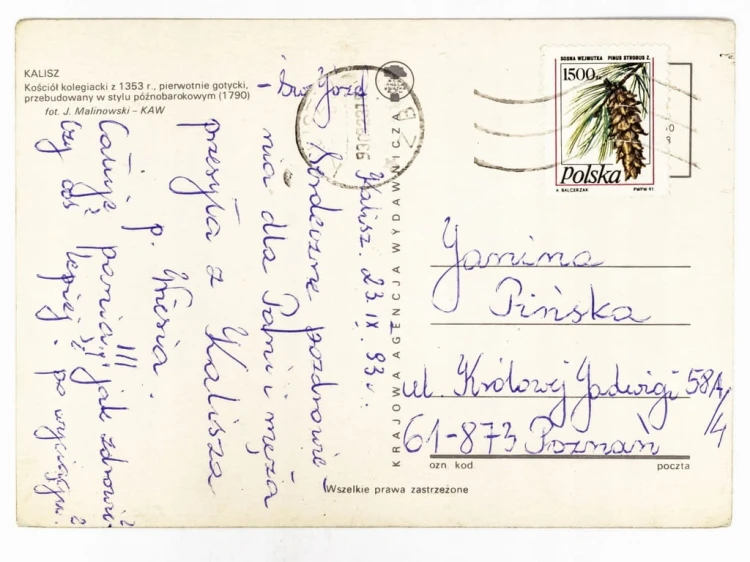 KALISZ
Kościół kolegiacki z 1353 r., pierwotnie gotycki,
przebudowany w stylu późnobarokowym (1790)
fot. J. Malinowski – KAW
Kalisz. 23.IX.93r.
Serdeczne pozdrowie-
nia dla Pani i męża
przesyła z Kalisza
p.
Całuję panią!!! jak zdrowie?
czy coś lepiej? po
KRAJOWA AGENCJA WYDAWNICZA
SOSNA WEJMUTKA PINUS STROBUS Z.
1500 zł
Polska
A. BALCERZAK PWPW 93
Janina
Pińska
ul. Królowej Jadwigi 58A/4
61-873 Poznań
ozn. kod. poczta
Wszelkie prawa zastrzeżone